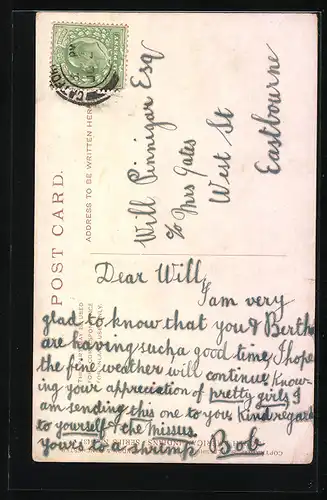 POST CARD.
ADDRESS TO BE WRITTEN HERE
Will Pinnigar Esq
c/o Mrs Gates
West St
Eastbourne
Dear Will,
I am very
glad to know that you & Bertha
are having such a good time, I hope
the fine weather will continue. Know-
ing your appreciation of pretty girls I
am sending this one to you. Kind regards
to yourself & the missus
yours to a shrimp Bob